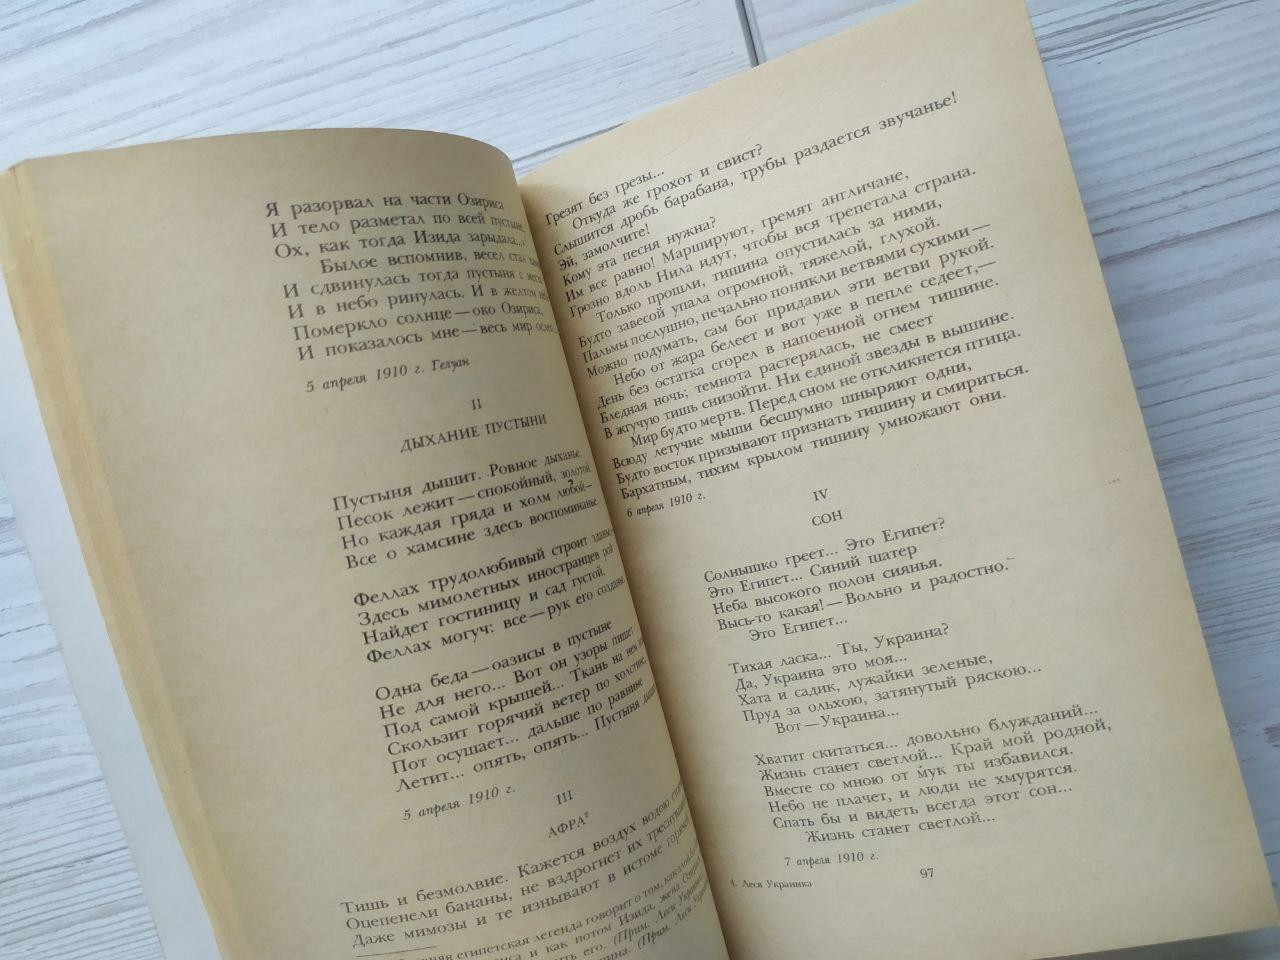 Я разорвал на части Озириса
И тело разметал по всей пустыне,
Ох, как тогда Изида зарыдала...
Былое вспомнив, весел стал
И сдвинулась тогда пустыня с места
И в небо ринулась. И в желтом небе
Померкло солнце — око Озириса,
И показалось мне — весь мир ослеп
5 апреля 1910 г. Гелуан
II
ДЫХАНИЕ ПУСТЫНИ
Пустыня дышит. Ровное дыханье.
Песок лежит — спокойный, золотой,
Но каждая гряда и холм любой —
Все о хамсине здесь воспоминанье.
Феллах трудолюбивый строит зданье
Здесь мимолетных иностранцев рой
Найдет гостиницу и сад густой.
Феллах могуч: все — рук его созданье.
Одна беда — оазисы в пустыне
Не для него... Вот он узоры пишет
Под самой крышей... Ткань на нем
Скользит горячий ветер по холстине,
Пот осушает... дальше по равнине
Летит... опять, опять... Пустыня дышит
5 апреля 1910 г.
III
АФРА²
Тишь и безмолвие. Кажется воздух водою
Оцепенели бананы, не вздрогнет их
Даже мимозы и те изнывают в истоме горячей
египетская легенда говорит о том, как злой бог
и как потом Изида, жена
его. (Прим. Леси Украинки
(Прим. Леси
Грезят без грезы...
Откуда же грохот и свист?
Слышится дробь барабана, трубы раздается звучанье!
Эй, замолчите!
Кому эта песня нужна?
Им все равно! Маршируют, гремят англичане,
Грозно вдоль Нила идут, чтобы вся трепетала страна.
Только прошли, тишина опустилась за ними,
Будто завесой упала огромной, тяжелой, глухой.
Пальмы послушно, печально поникли ветвями сухими —
Можно подумать, сам бог придавил эти ветви рукой.
Небо от жара белеет и вот уже в пепле седеет, —
День без остатка сгорел в напоенной огнем тишине.
Бледная ночь; темнота растерялась, не смеет
В жгучую тишь снизойти. Ни единой звезды в вышине.
Мир будто мертв. Перед сном не откликнется птица.
Всюду летучие мыши бесшумно шныряют одни,
Будто восток призывают признать тишину и смириться.
Бархатным, тихим крылом тишину умножают они.
6 апреля 1910 г.
IV
СОН
Солнышко греет... Это Египет?
Это Египет... Синий шатер
Неба высокого полон сиянья.
Высь-то какая! — Вольно и радостно.
Это Египет...
Тихая ласка... Ты, Украина?
Да, Украина это моя...
Хата и садик, лужайки зеленые,
Пруд за ольхою, затянутый ряскою...
Вот — Украина...
Хватит скитаться... довольно блужданий...
Жизнь станет светлой... Край мой родной,
Вместе со мною от мук ты избавился.
Небо не плачет, и люди не хмурятся.
Спать бы и видеть всегда этот сон...
Жизнь станет светлой...
7 апреля 1910 г.
4. Леся Украинка
97